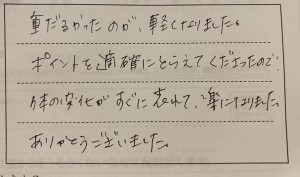 重だるかったのが、軽くなりました。
ポイントを適確にとらえてくださったので
体の変化がすぐに表れて、楽になりました。
ありがとうございました。